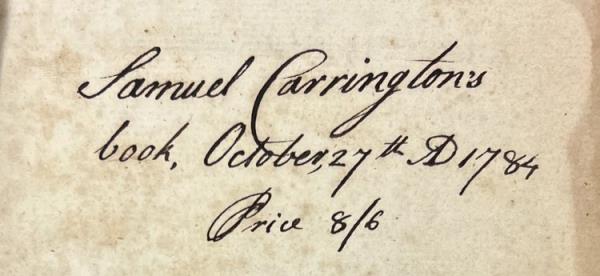 Samuel Carrington's
book, October, 27th AD 1784
Price 8/6